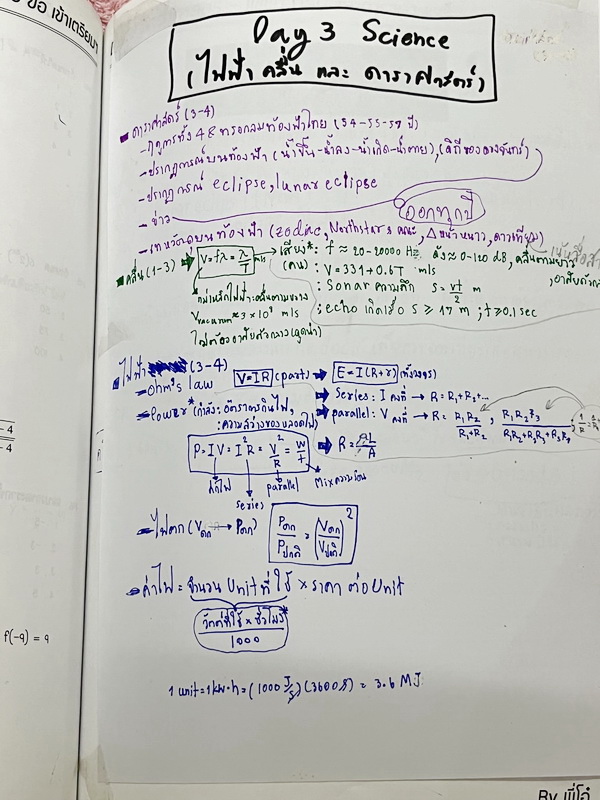 ขอ เข้าเตรียมฯ
Day 3 Science
(ไฟฟ้า คลื่น และ ดาราศาสตร์)
ดาราศาสตร์ (3-4)
- ฤดูกาลทั้ง 4 & ทรงกลมท้องฟ้าไทย (54-55-59 ปี)
- ปรากฏการณ์บนท้องฟ้า (น้ำขึ้น-น้ำลง-น้ำเกิด-น้ำตาย), (ดิถีของดวงจันทร์)
- ปรากฏการณ์ eclipse, lunar eclipse
- ข่าว
ออกทุกปี
- เทหวัตถุบนท้องฟ้า (zodiac, Northstar, Δหน้าหนาว, ดาวเทียม)
คลื่น (1-3) → V = fλ = λ/T m/s
เสียง* : f ≈ 20-20000 Hz, ดัง ≈ 0-120 dB, คลื่นตามยาว, อาศัยตัวกลาง
(คน) ; V = 331+0.6T m/s
; Sonar ความลึก S = vt/2 m
; echo เกิดเมื่อ S ≥ 17 m ; t ≥ 0.1 sec
*แม่เหล็กไฟฟ้า: คลื่นตามขวาง
Vvacuum = 3 × 10⁸ m/s
ไม่ต้องอาศัยตัวกลาง
ไฟฟ้า (3-4)
- ohm's law V = IR (part) → E = I(R+r) (ทั้งวงจร)
- Power* (กำลัง: อัตราการกินไฟ,
: ความสว่างของหลอดไฟ)
→ series: I คงที่ → R = R₁+R₂+...
→ parallel: V คงที่ → R = R₁R₂/R₁+R₂, R₁R₂R₃/R₁R₂+R₂R₃+R₁R₃
P = IV = I²R = V²/R = W/t
→ R = ρL/A
ค่าไฟ
series
parallel
* Mix ความร้อน
- ไฟตก (Vตก → Pตก) Pตก/Pปกติ = (Vตก/Vปกติ)²
- ค่าไฟ = จำนวน Unit ที่ใช้ × ราคา ต่อ Unit
วัตต์ที่ใช้ × ชั่วโมง*/1000
1 unit = 1 kw·h = (1000 J/s)(3600 s) = 3.6 MJ
f(-9) = 9
By พี่โอ๋